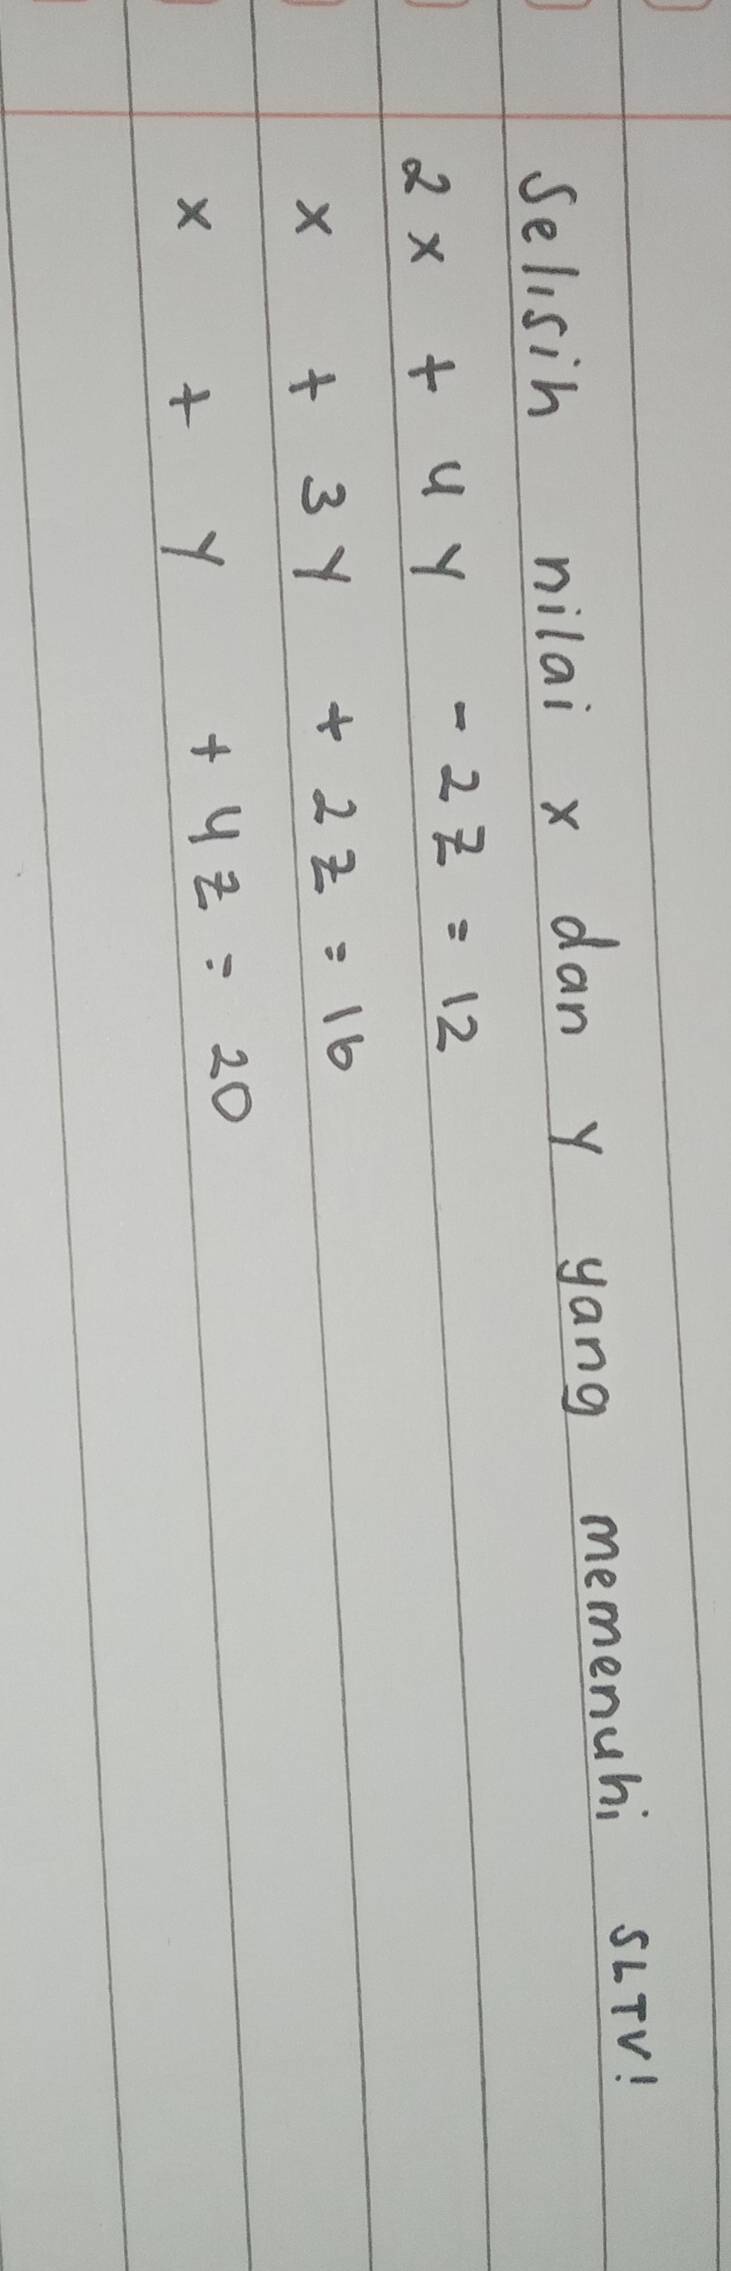 Selisih nilai x dan y yang memenuhi SLTV!
2x + 4y - 2z = 12
x + 3y + 2z = 16
x + y + 4z = 20